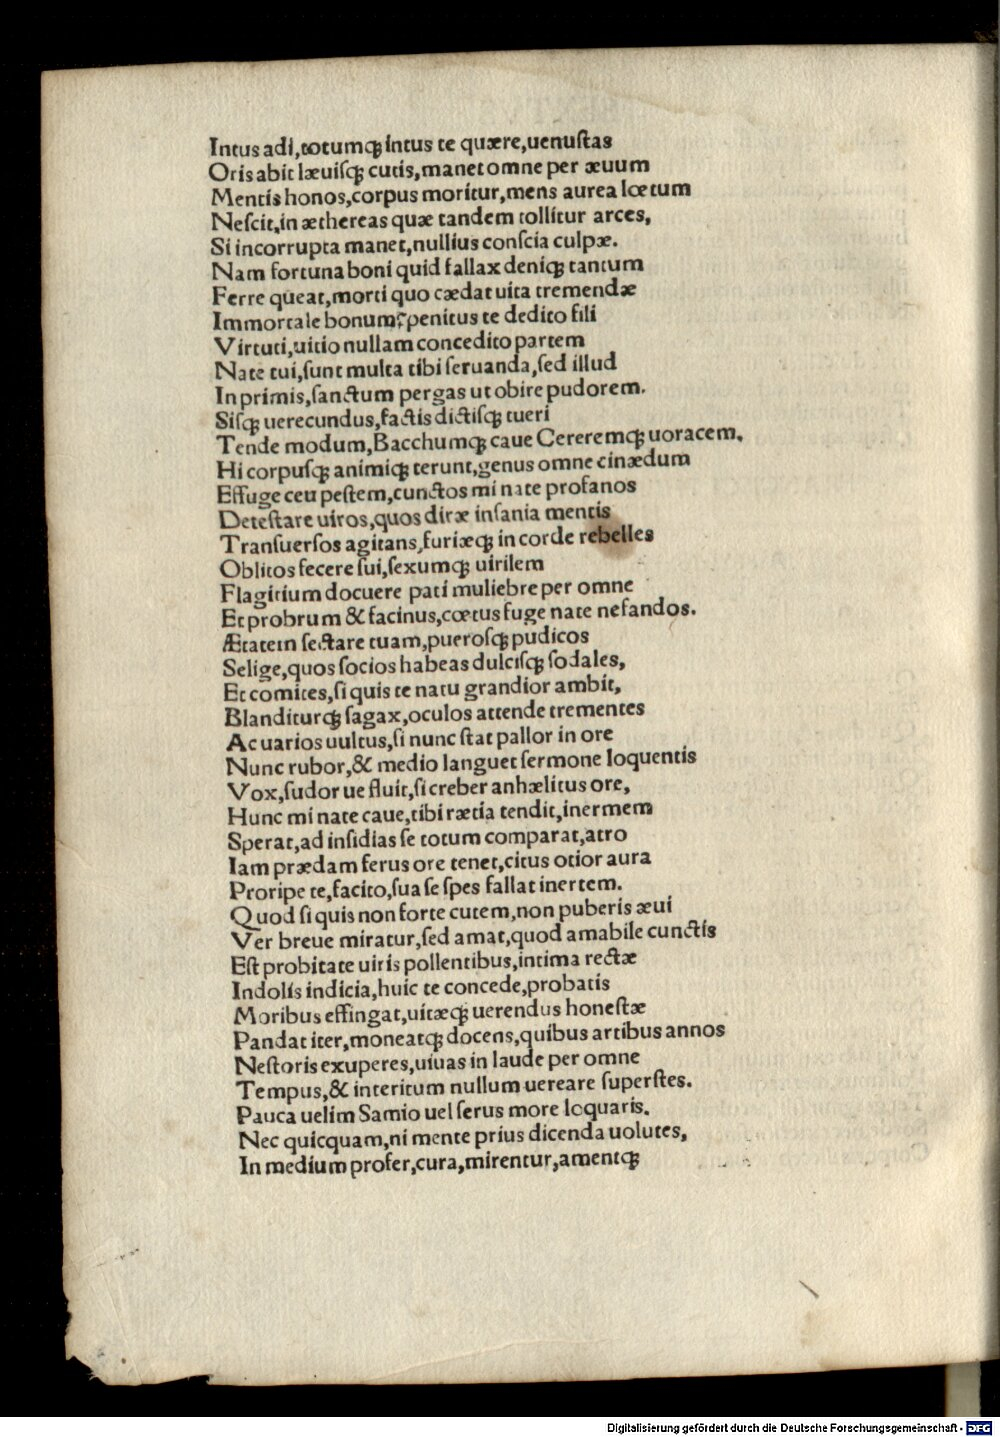 Intus adi,totumqꝫ intus te quære,uenuſtas
Oris abit læuiſqꝫ cutis,manet omne per æuum
Mentis honos,corpus moritur,mens aurea lœtum
Neſcit,in æthereas quæ tandem tollitur arces,
Si incorrupta manet,nullius conſcia culpæ.
Nam fortuna boni quid fallax deniqꝫ tantum
Ferre queat,morti quo cædat uita tremendæ
Immortale bonum?penitus te dedito fili
Virtuti,uitio nullam concedito partem
Nate tui,ſunt multa tibi ſeruanda,ſed illud
In primis,ſanctum pergas ut obire pudorem.
Siſqꝫ uerecundus,factis dictiſqꝫ tueri
Tende modum,Bacchumqꝫ caue Cereremqꝫ uoracem.
Hi corpuſqꝫ animiqꝫ terunt,genus omne cinædum
Effuge ceu peſtem,cunctos mi nate profanos
Deteſtare uiros,quos diræ inſania mentis
Tranſuerſos agitans,furiæqꝫ in corde rebelles
Oblitos fecere ſui,ſexumqꝫ uirilem
Flagitium docuere pati muliebre per omne
Et probrum & facinus,cœtus fuge nate nefandos.
Ætatem ſectare tuam,pueroſqꝫ pudicos
Selige,quos ſocios habeas dulciſqꝫ ſodales,
Et comites,ſi quis te natu grandior ambit,
Blanditurqꝫ ſagax,oculos attende trementes
Ac uarios uultus,ſi nunc ſtat pallor in ore
Nunc rubor,& medio languet ſermone loquentis
Vox,ſudor ue fluit,ſi creber anhælitus ore,
Hunc mi nate caue,tibi rætia tendit,inermem
Sperat,ad inſidias ſe totum comparat,atro
Iam prædam ferus ore tenet,citus otior aura
Proripe te,facito,ſua ſe ſpes fallat inertem.
Quod ſi quis non forte cutem,non puberis æui
Ver breue miratur,ſed amat,quod amabile cunctis
Eſt probitate uiris pollentibus,intima rectæ
Indolis indicia,huic te concede,probatis
Moribus effingat,uitæqꝫ uerendus honeſtæ
Pandat iter,moneatqꝫ docens,quibus artibus annos
Neſtoris exuperes,uiuas in laude per omne
Tempus,& interitum nullum uereare ſuperſtes.
Pauca uelim Samio uel ſerus more loquaris.
Nec quicquam,ni mente prius dicenda uolutes,
In medium profer,cura,mirentur,amentqꝫ
Digitalisierung gefördert durch die Deutsche Forschungsgemeinschaft - DFG